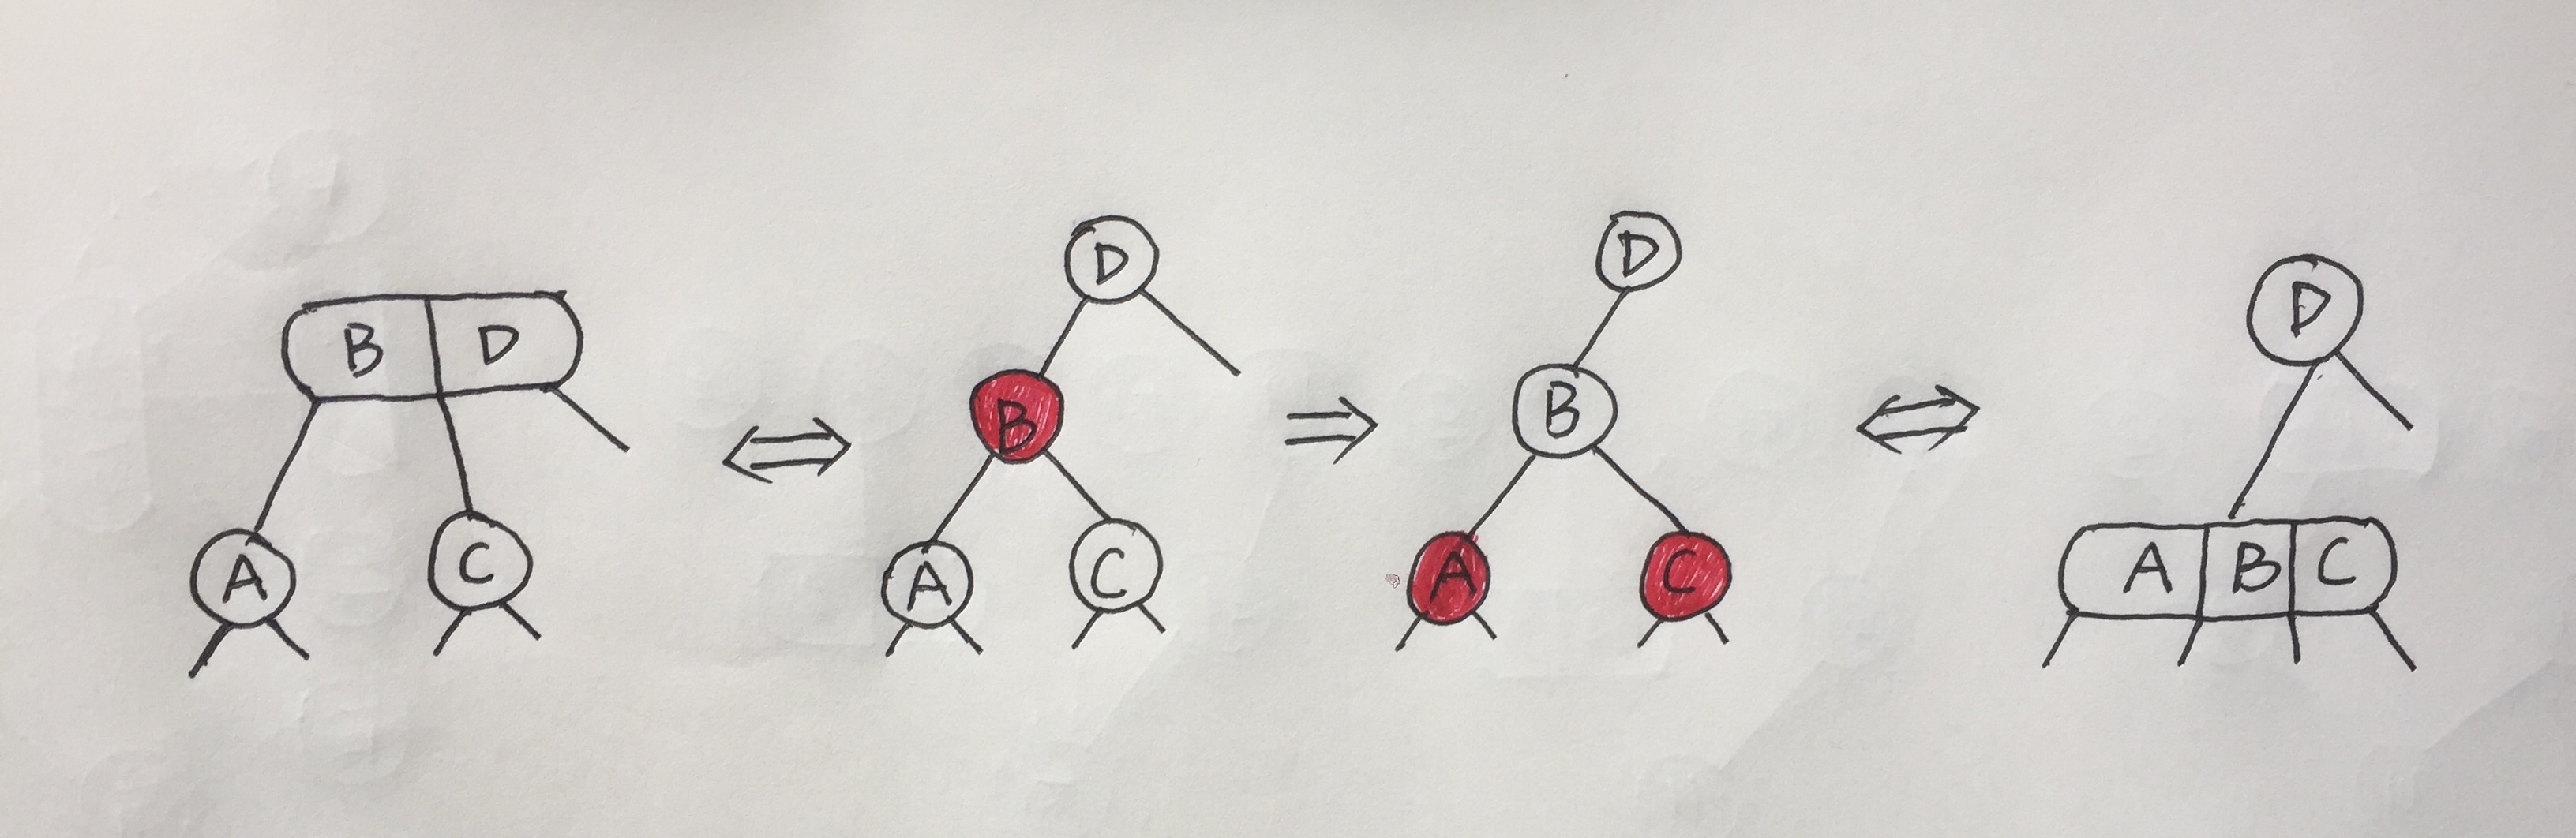 B D
A C
D
B
A C
D
B
A C
D
A B C